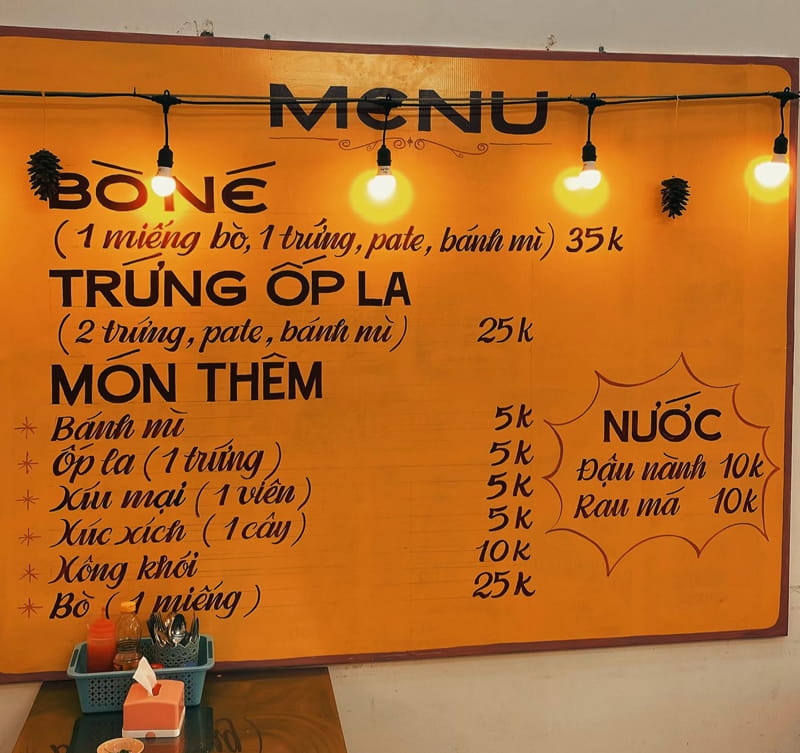 MENU
BÒ NÉ
(1 miếng bò, 1 trứng, pate, bánh mì) 35k
TRỨNG ỐP LA
(2 trứng, pate, bánh mì) 25k
MÓN THÊM
Bánh mì 5k
Ốp la (1 trứng) 5k
Xíu mại (1 viên) 5k
Xúc xích (1 cây) 5k
Xông khói 10k
Bò (1 miếng) 25k
NƯỚC
Đậu nành 10k
Rau má 10k